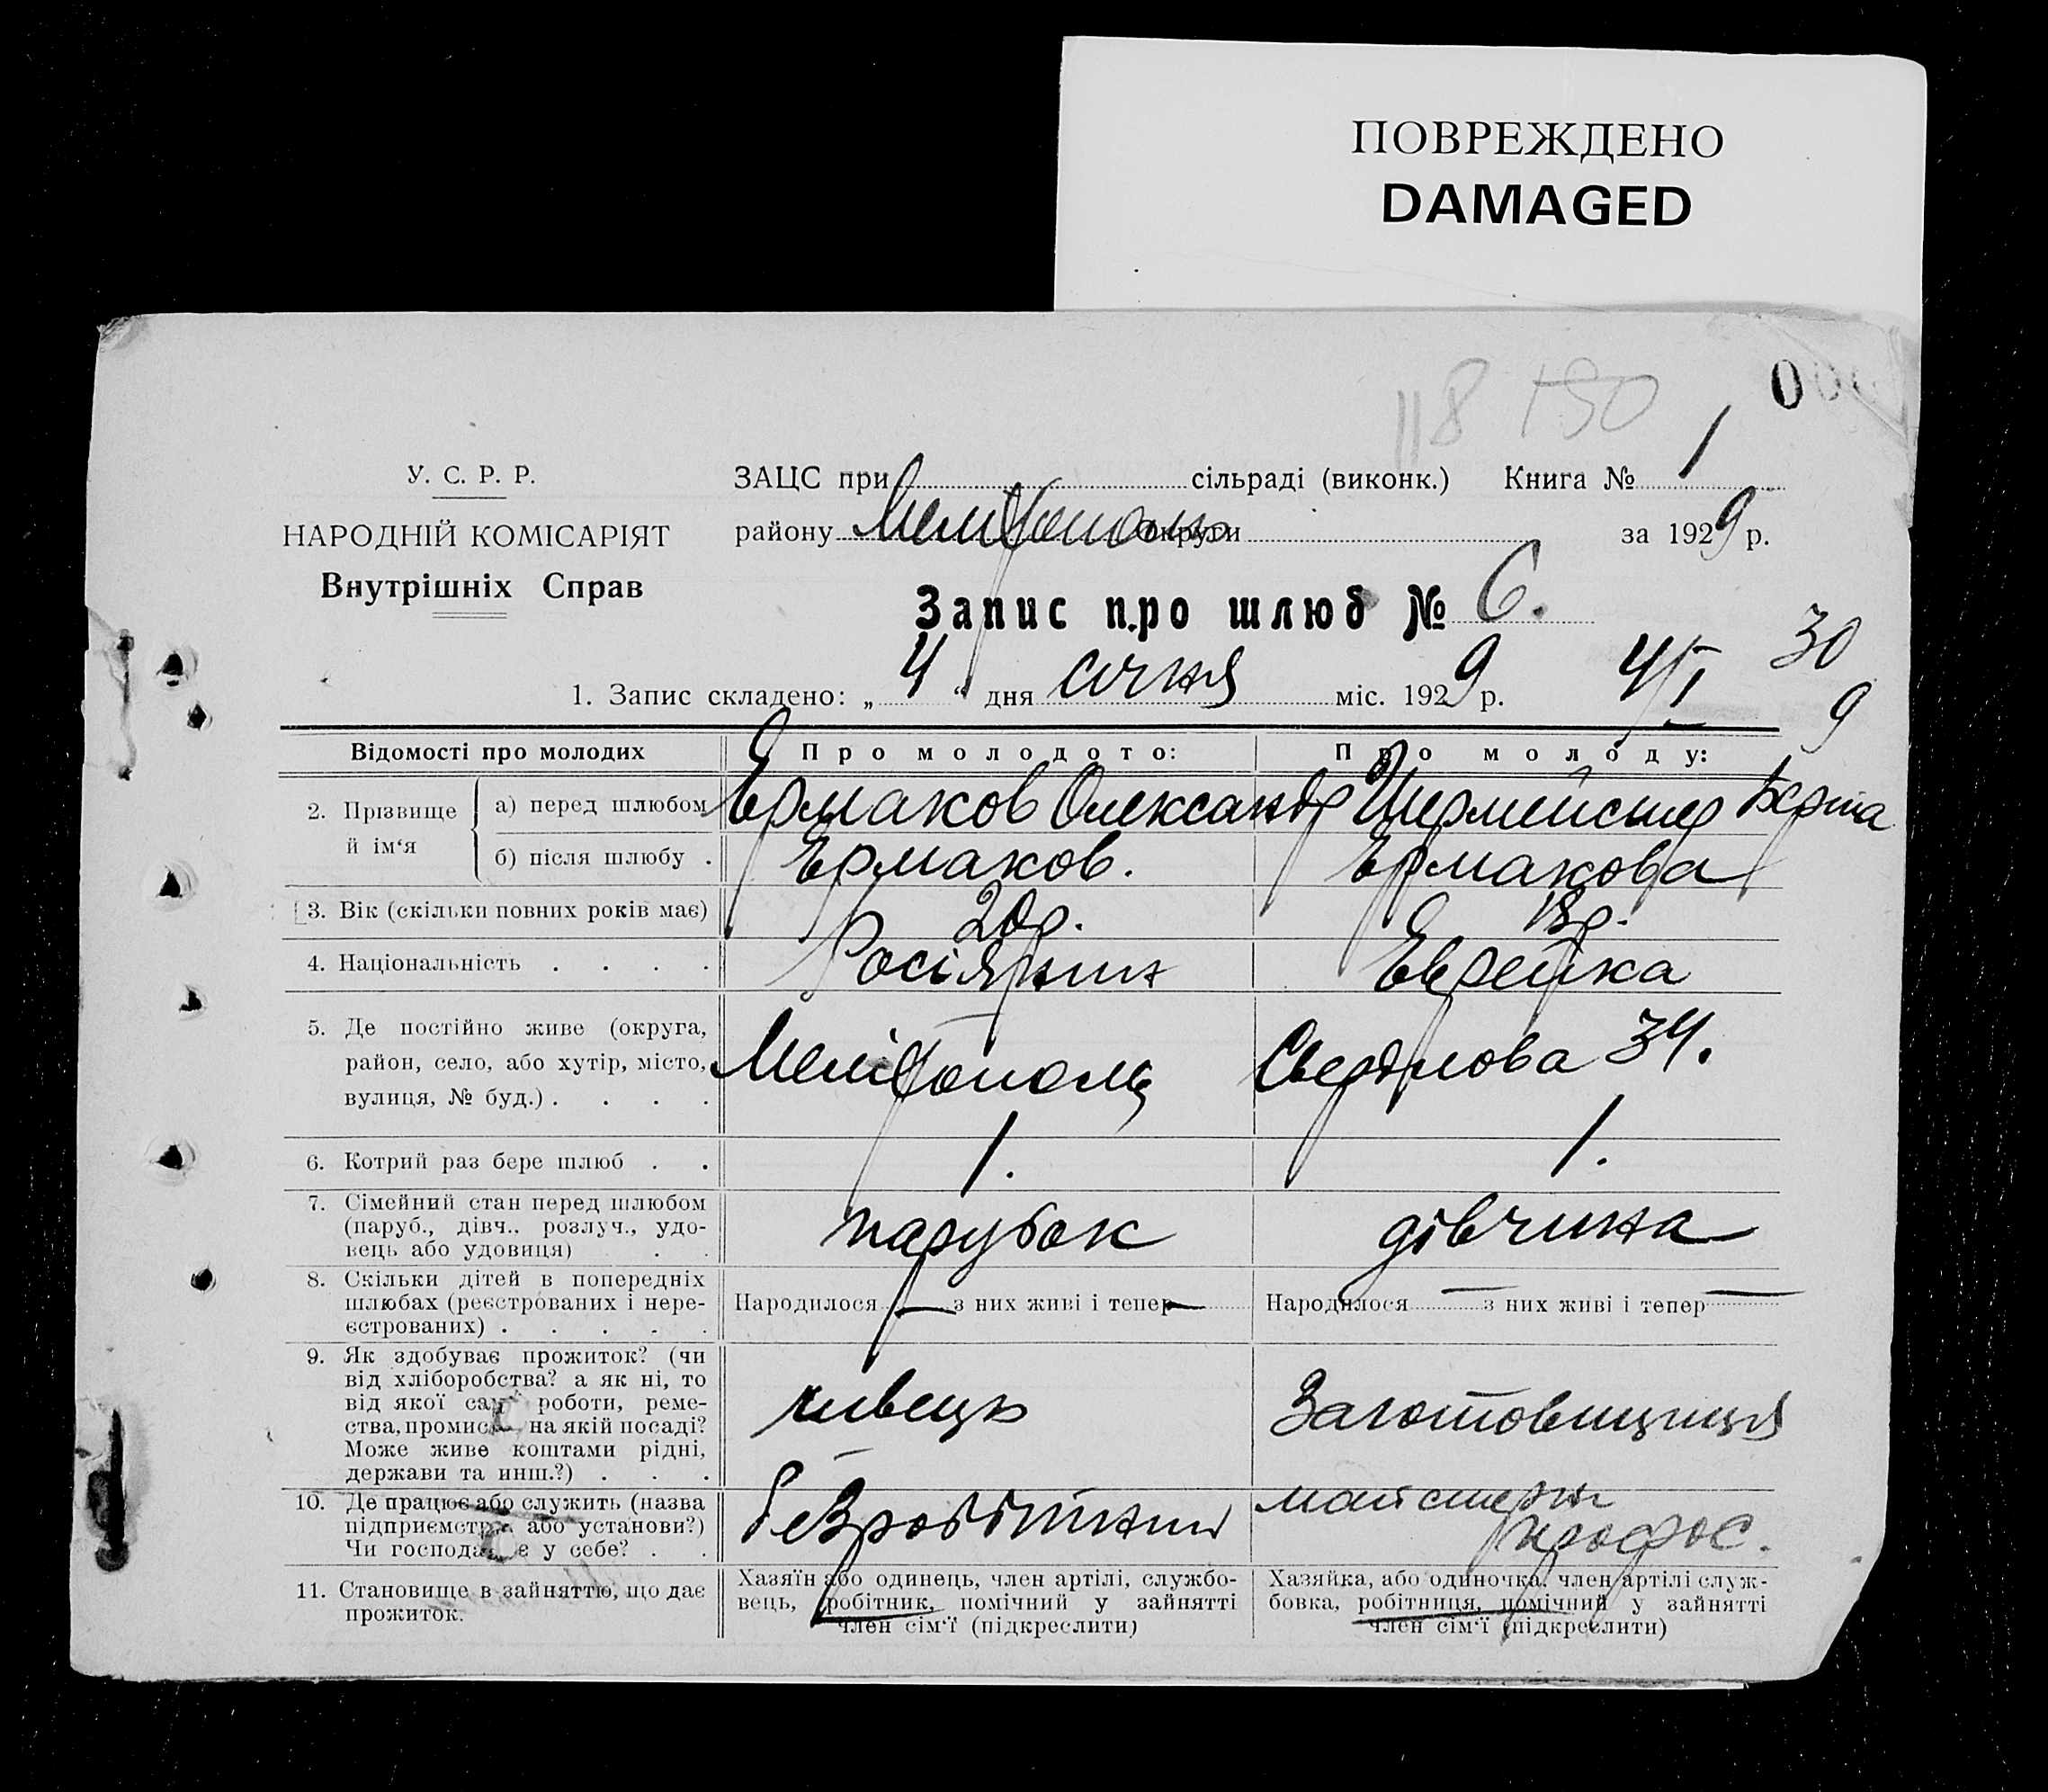 ПОВРЕЖДЕНО
DAMAGED
118 150
0
У. С. Р. Р.
НАРОДНІЙ КОМІСАРІЯТ
Внутрішніх Справ
ЗАЦС при сільраді (виконк.) Книга № 1
району Мелітополь округи за 1929 р.
Запис про шлюб № 6.
1. Запис складено: „4“ дня січня міс. 1929 р. 4/I 30
9
Відомості про молодих Про молодого: Про молоду:
2. Прізвище й ім‘я
а) перед шлюбом Ермаков Олександр Цермейстер Берта
б) після шлюбу . Ермаков. Ермакова
3. Вік (скільки повних років має) 20р. 18р.
4. Національність . . . . Росіянин Еврейка
5. Де постійно живе (округа,
район, село, або хутір, місто,
вулиця, № буд.) . . . . Мелітополь Свердлова 34.
6. Котрий раз бере шлюб . . 1. 1.
7. Сімейний стан перед шлюбом
(паруб., дівч., розлуч., удо-
вець або удовиця) . . парубок дівчина
8. Скільки дітей в попередніх
шлюбах (реєстрованих і нере-
єстрованих) . . . . .
Народилося — з них живі і тепер —
Народилося — з них живі і тепер —
9. Як здобуває прожиток? (чи
від хліборобства? а як ні, то
від якої роботи, реме-
ства, промис на якій посаді?
Може живе коштами рідні,
держави та инш.?) . . .
Заготовщиця
10. Де працює або служить (назва
підприємстра або установи?)
Чи господа є у себе? . .
безробітний
майстерня
профос.
11. Становище в зайняттю, що дає
прожиток.
Хазяїн або одинець, член артілі, службо-
вець, робітник, помічний у зайнятті
член сім‘ї (підкреслити)
Хазяйка, або одиночка, член артілі служ-
бовка, робітниця, помічний у зайнятті
член сім‘ї (підкреслити)